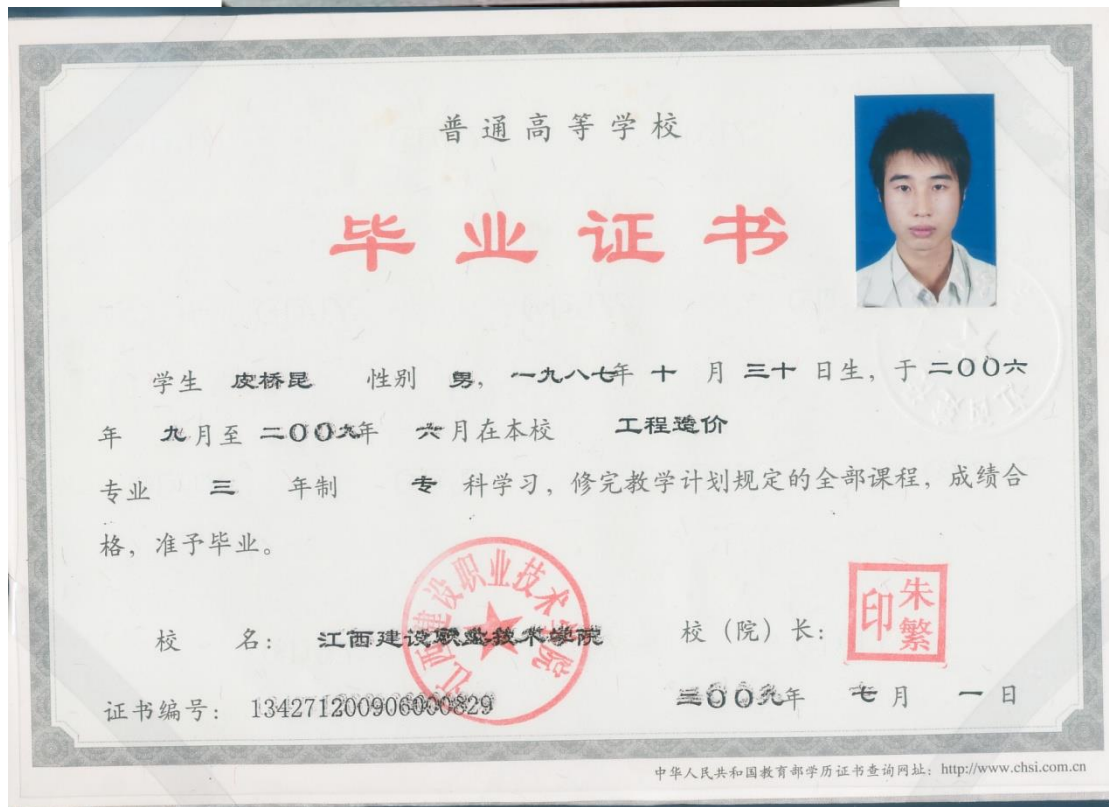 普通高等学校
毕业证书
学生 皮桥昆 性别 男，一九八七年 十 月 三十 日生，于 二〇〇六
年 九月至 二〇〇九年 六月在本校 工程造价
专业 三 年制 专 科学习，修完教学计划规定的全部课程，成绩合
格，准予毕业。
江西建设职业技术学院
校 名： 江西建设职业技术学院 校（院）长：
朱繁
印
证书编号： 134271200906000829 二〇〇九年 七月 一日
中华人民共和国教育部学历证书查询网址：http://www.chsi.com.cn